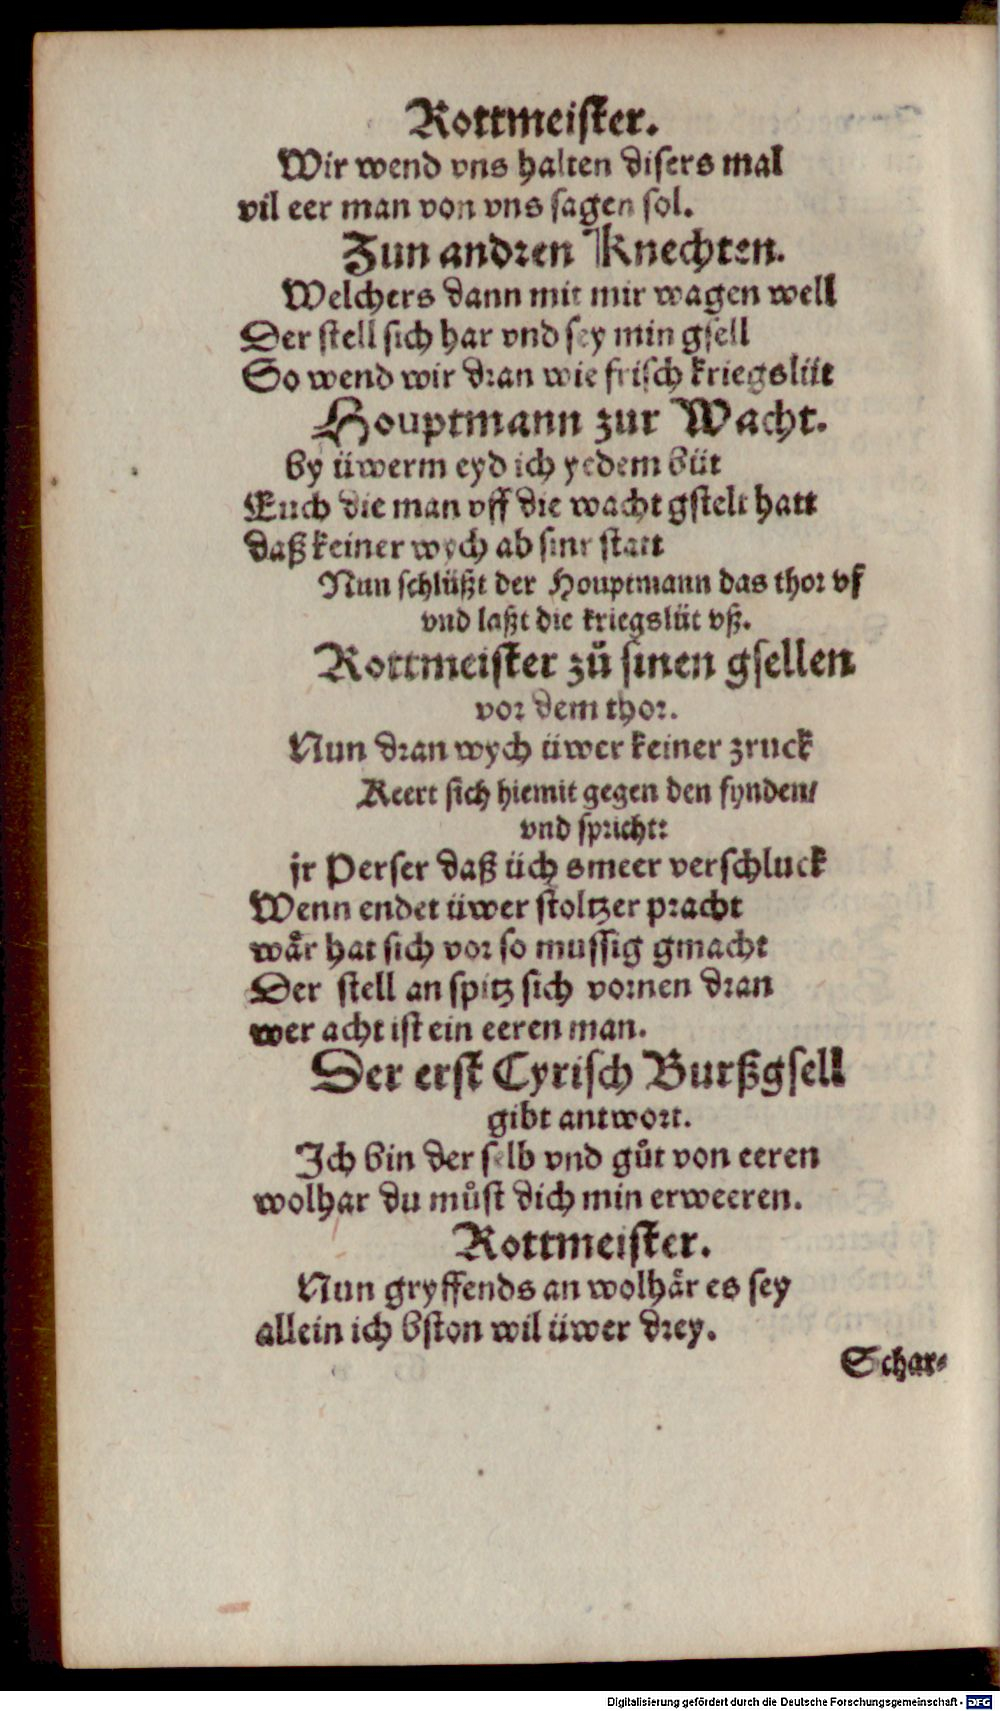 Rottmeister.
Wir wend vns halten disers mal
vil eer man von vns sagen sol.
Zun andren Knechten.
Welchers dann mit mir wagen well
Der stell sich har vnd sey min gsell
So wend wir dran wie frisch kriegslüt
Houptmann zur Wacht.
by üwerm eyd ich yedem büt
Euch die man vff die wacht gstelt hatt
daß keiner wych ab sinr statt
Nun schlüßt der Houptmann das thor vf
vnd laßt die kriegslüt vß.
Rottmeister zů sinen gsellen
vor dem thor.
Nun dran wych üwer keiner zruck
Keert sich hiemit gegen den fynden/
vnd spricht:
jr Perser daß üch smeer verschluck
Wenn endet üwer stoltzer pracht
wår hat sich vor so mussig gmacht
Der stell an spitz sich vornen dran
wer acht ist ein eeren man.
Der erst Cyrisch Burßgsell
gibt antwort.
Ich bin der selb vnd gůt von eeren
wolhar du můst dich min erweeren.
Rottmeister.
Nun gryffends an wolhår es sey
allein ich bston wil üwer drey.
Schar-
Digitalisierung gefördert durch die Deutsche Forschungsgemeinschaft - DFG